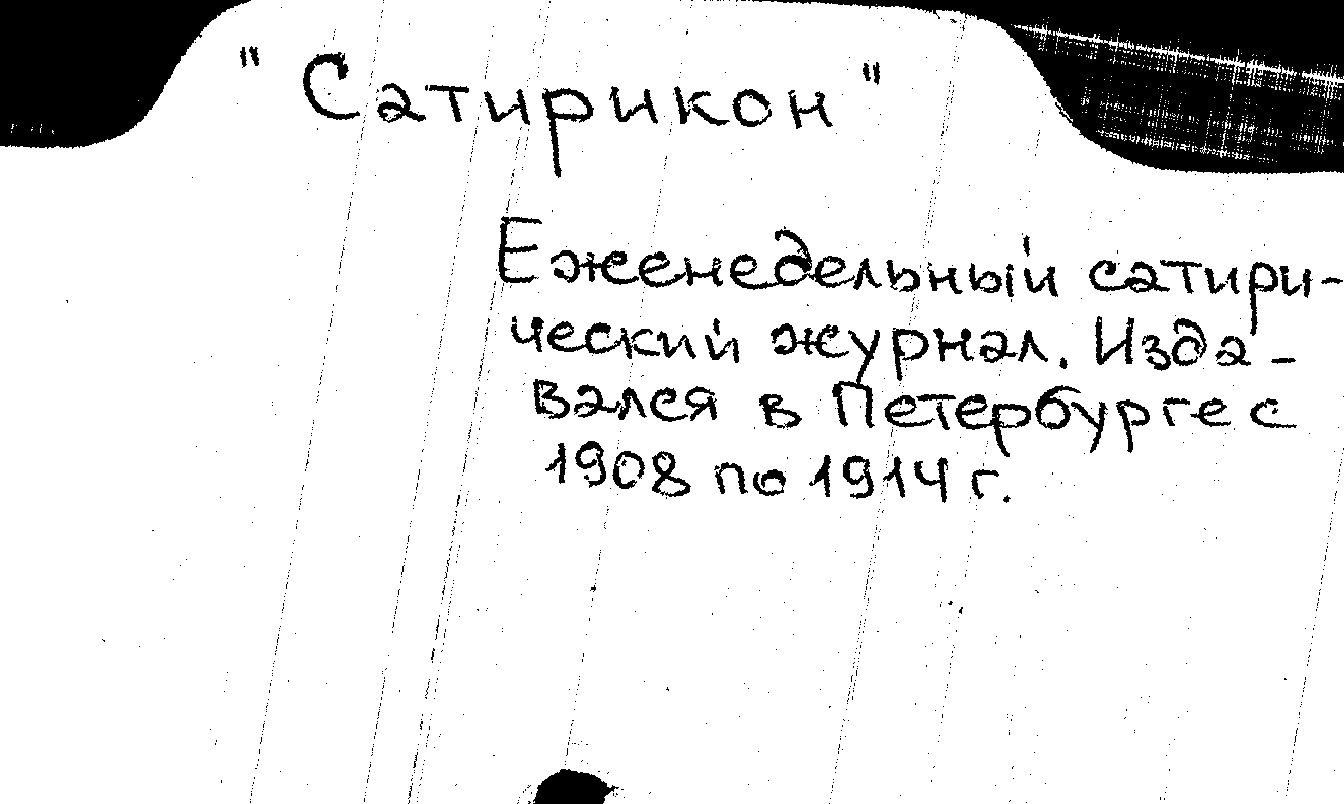 "Сатирикон"
Еженедельный сатири-
ческий журнал. Изда-
вался в Петербурге с
1908 по 1914 г.